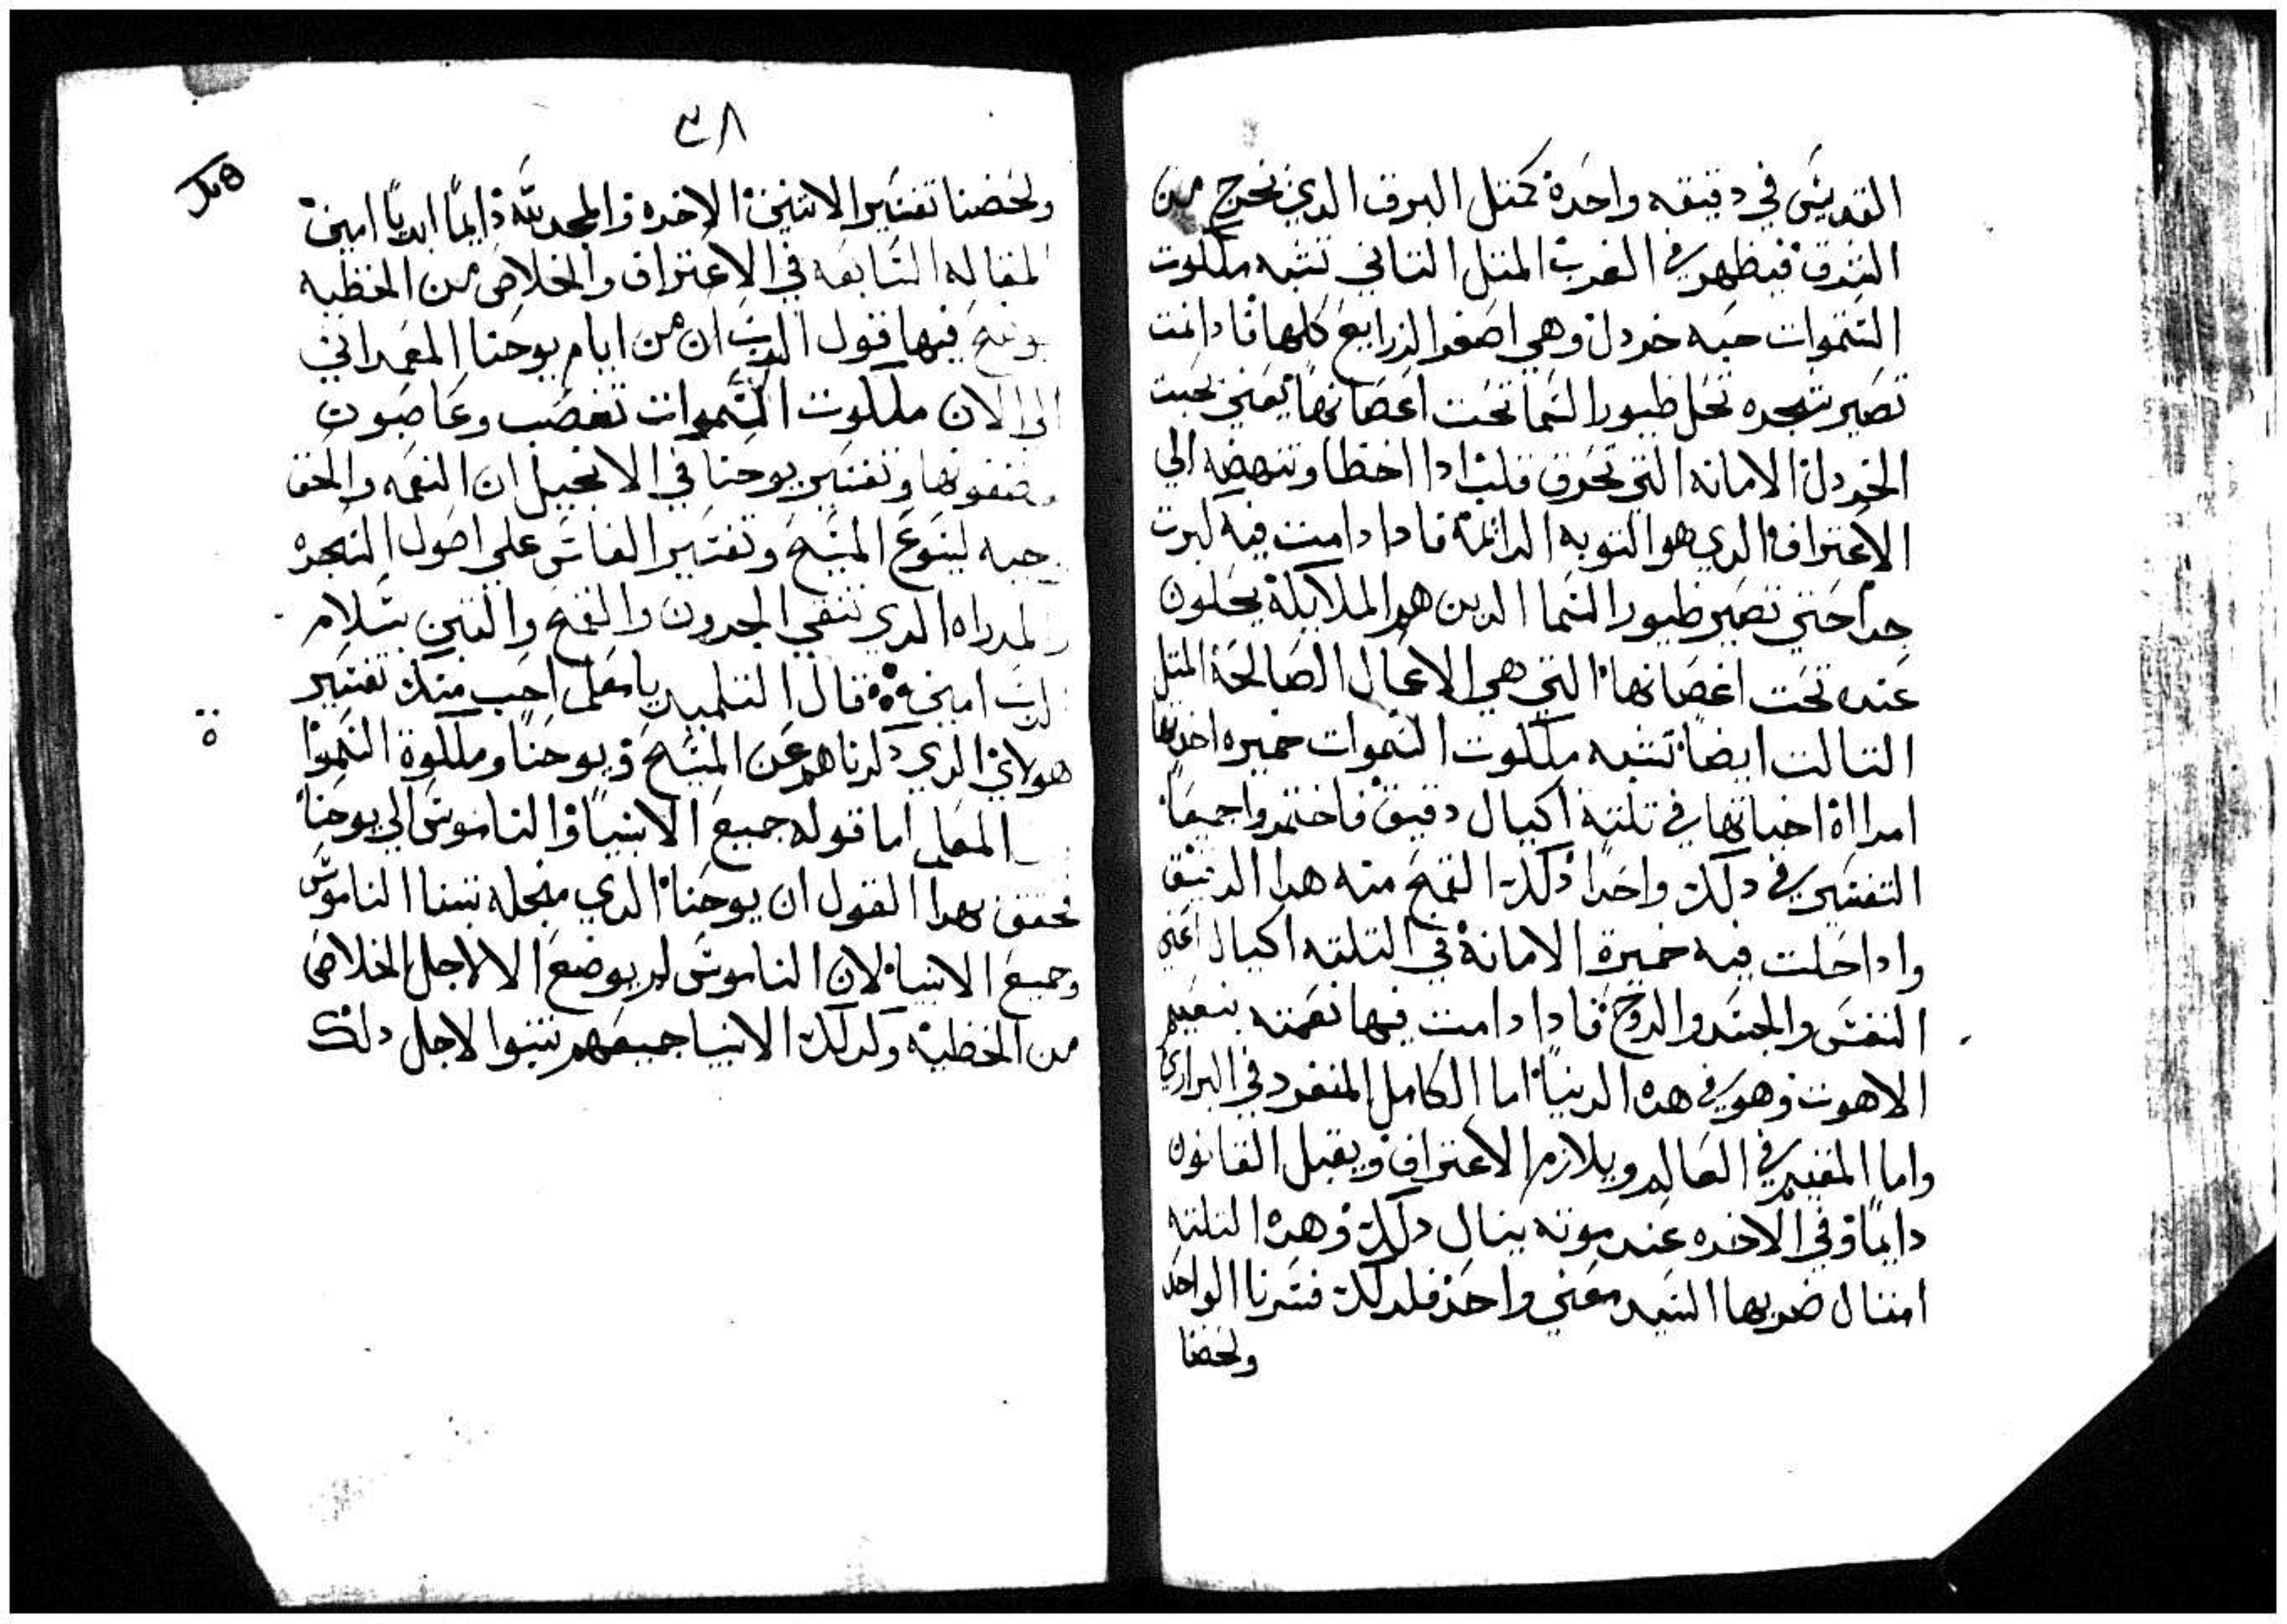 القديس في دقيقه واحدة كمتل البرق الدي يخرج من
الشرق فيظهر في الغرب المتل التاني تشبه ملكوت
السموات حبه خردل وهي اصغر الزرايع كلها فادا نمت
تصير شجره تحل طيور السما تحت اغصانها يعني بحبت
الخردل الامانه التي تحرق قلبه ادا اخطا وتنهضه الي
الاعتراف الدي هو التوبه الدائمة فادا دامت فيه كبرت
جداً حتي تصير طيور السما الدين هم الملايكة يحلون
عنده تحت اغصانها التي هي الاعمال الصالحة المتل
التالت ايضاً تشبه ملكوت السموات خميره اخدتها
امرااة اخباتها في تلتة اكيال دقيق فاختمر واجميعاً
التفسير في دلك واحداً دلك القمح منه هدا الدقيق
وادا حلت فيه خميرة الامانة في التلته اكيال اعني
النفس والجسد والروح فادا دامت فيها نعمته بنعيم
الاهوت وهو في هده الدنيا اما الكامل المنفرد في البراري
واما المقيم في العالم ويلازم الاعتراف ويقبل القانون
دايماً وفي الاخره عند موته ينال دلك وهده التلته
امتال ضربها السيد معني واحد فلدلك فسرنا الواحد
ولخصنا
٣٨
ولخصنا تفسير الاتنين الاخره والمجد لله دايماً ابدياً امين
المقاله السابعه في الاعتراف والخلاص من الخطيه
يوضح فيها قول الرب ان من ايام يوحنا المعمداني
الي الان ملكوت السموات تغصب وغاصبون
يختطفونها وتفسير يوحنا في الانجيل ان النعمه والحق
وجبه ليسوع المسيح وتفسير الفاس علي اصول الشجره
والمدراه الدي تنقي الجرون والقمح والتبن بسلام
الرب امين قال التلميد يا معلم احب منك تفسير
هولاي الدي دكرناهم عن المسيح ويوحنا وملكوة السموات
المعلم اما قوله جميع الانبيا والناموس الي يوحنا
تحقق بهدا القول ان يوحنا الدي منجله تنبا الناموس
وجميع الانبيا لان الناموس لم يوضع الا لاجل الخلاص
من الخطية وكدلك الانبيا جميعهم تنبوا لاجل دلك